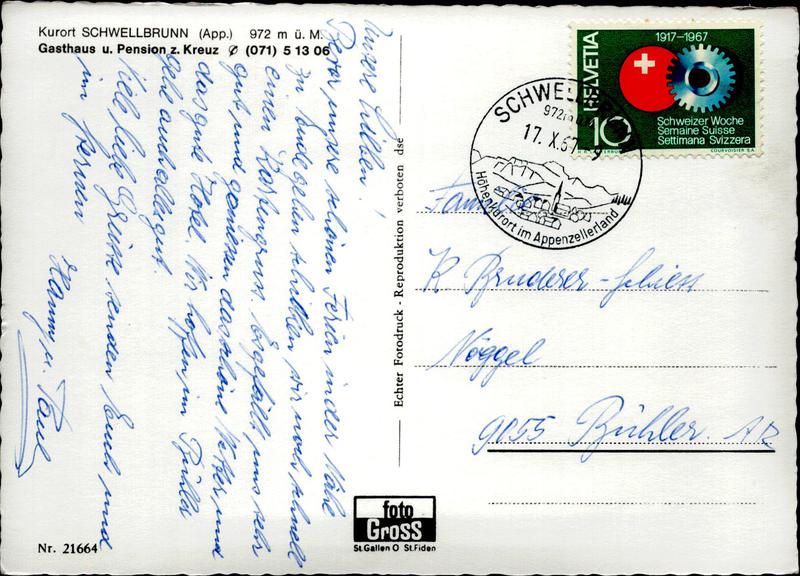 Kurort SCHWELLBRUNN (App.) 972 m ü. M.
Gasthaus u. Pension z. Kreuz ✆ (071) 5 13 06
Unsere Lieben!
Bevor unsere schönen Ferien in der Nähe
zu Ende gehen schicken wir noch schnell
einen Kartengruss. Es gefällt uns sehr
gut und geniessen das schöne Wetter und
das gute Hotel. Wir hoffen, im Bühler
geht auch alles gut.
Viele liebe Grüsse senden Euch und
im fernen
Hanny u. Paul
Echter Fotodruck - Reproduktion verboten dse
HELVETIA
1917-1967
10
Schweizer Woche
Semaine Suisse
Settimana Svizzera
COURVOISIER S.A.
SCHWELLBRUNN
972m ü.M.
17. X. 67 - 9
Höhenkurort im Appenzellerland
Fam.
K Bruderer-Schiess
Nöggel
9055 Bühler. AR
foto
Gross
St.Gallen O St.Fiden
Nr. 21664